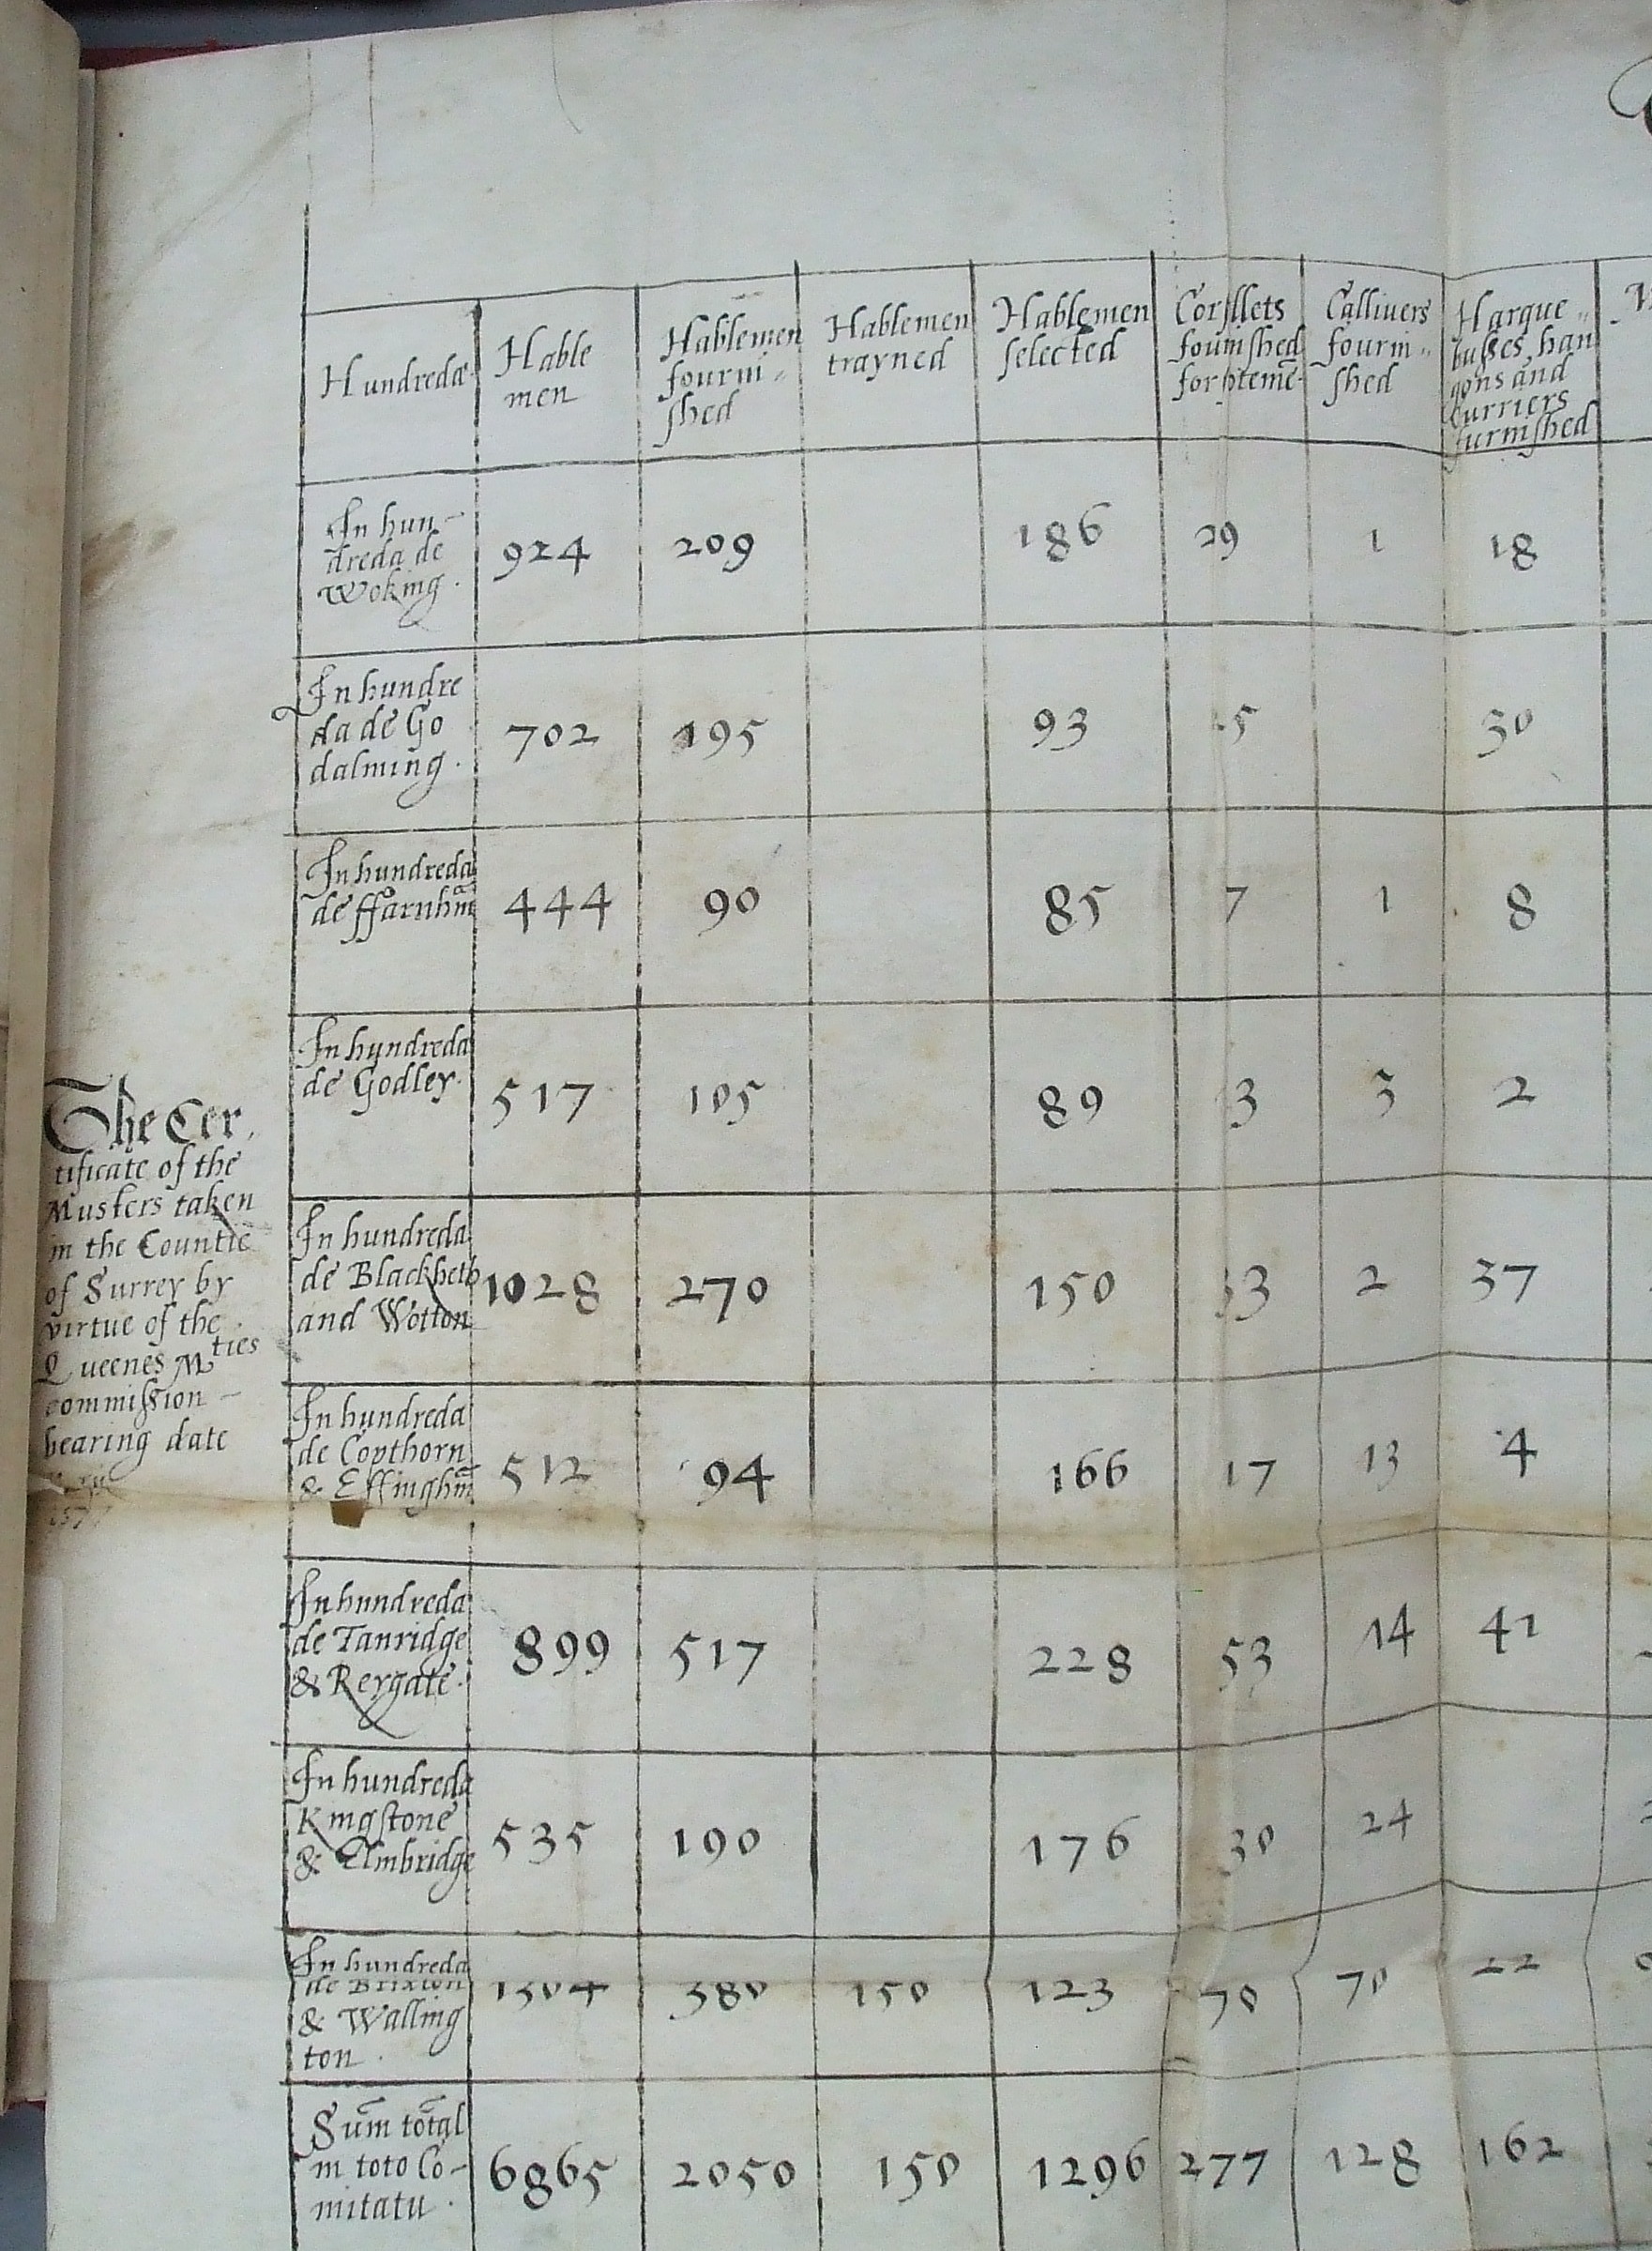 Hundreda
Hable
men
Hablemen
fourni-
shed
Hablemen
trayned
Hablemen
selected
Corsllets
fournished
Callivers
fourni-
shed
Harque-
busses, han
gons and
Curriers
furnished
In hun-
dreda de
Woking.
924 209 186 29 1 18
In hundre
da de Go
dalming.
702 195 93 5 30
In hundreda
de ffarnhm̃
444 90 85 7 1 8
In hundreda
de Godley.
517 105 89 3 3 2
In hundreda
de Blackheth
and Wotton
1028 270 150 33 2 37
In hundreda
de Copthorn
& Effinghm̃
512 94 166 17 13 4
In hundreda
de Tanridge
& Reygate.
899 517 228 53 14 41
In hundreda
Kingstone
& Elmbridge
535 190 176 30 24
In hundreda
de Brixton
& Walling
ton.
1304 380 150 123 70 70 22
Sum̃ total
in toto Co-
mitatu.
6865 2050 150 1296 277 128 162
The Cer
tificate of the
Musters taken
in the Countie
of Surrey by
virtue of the
Queenes Mties
commission
bearing date